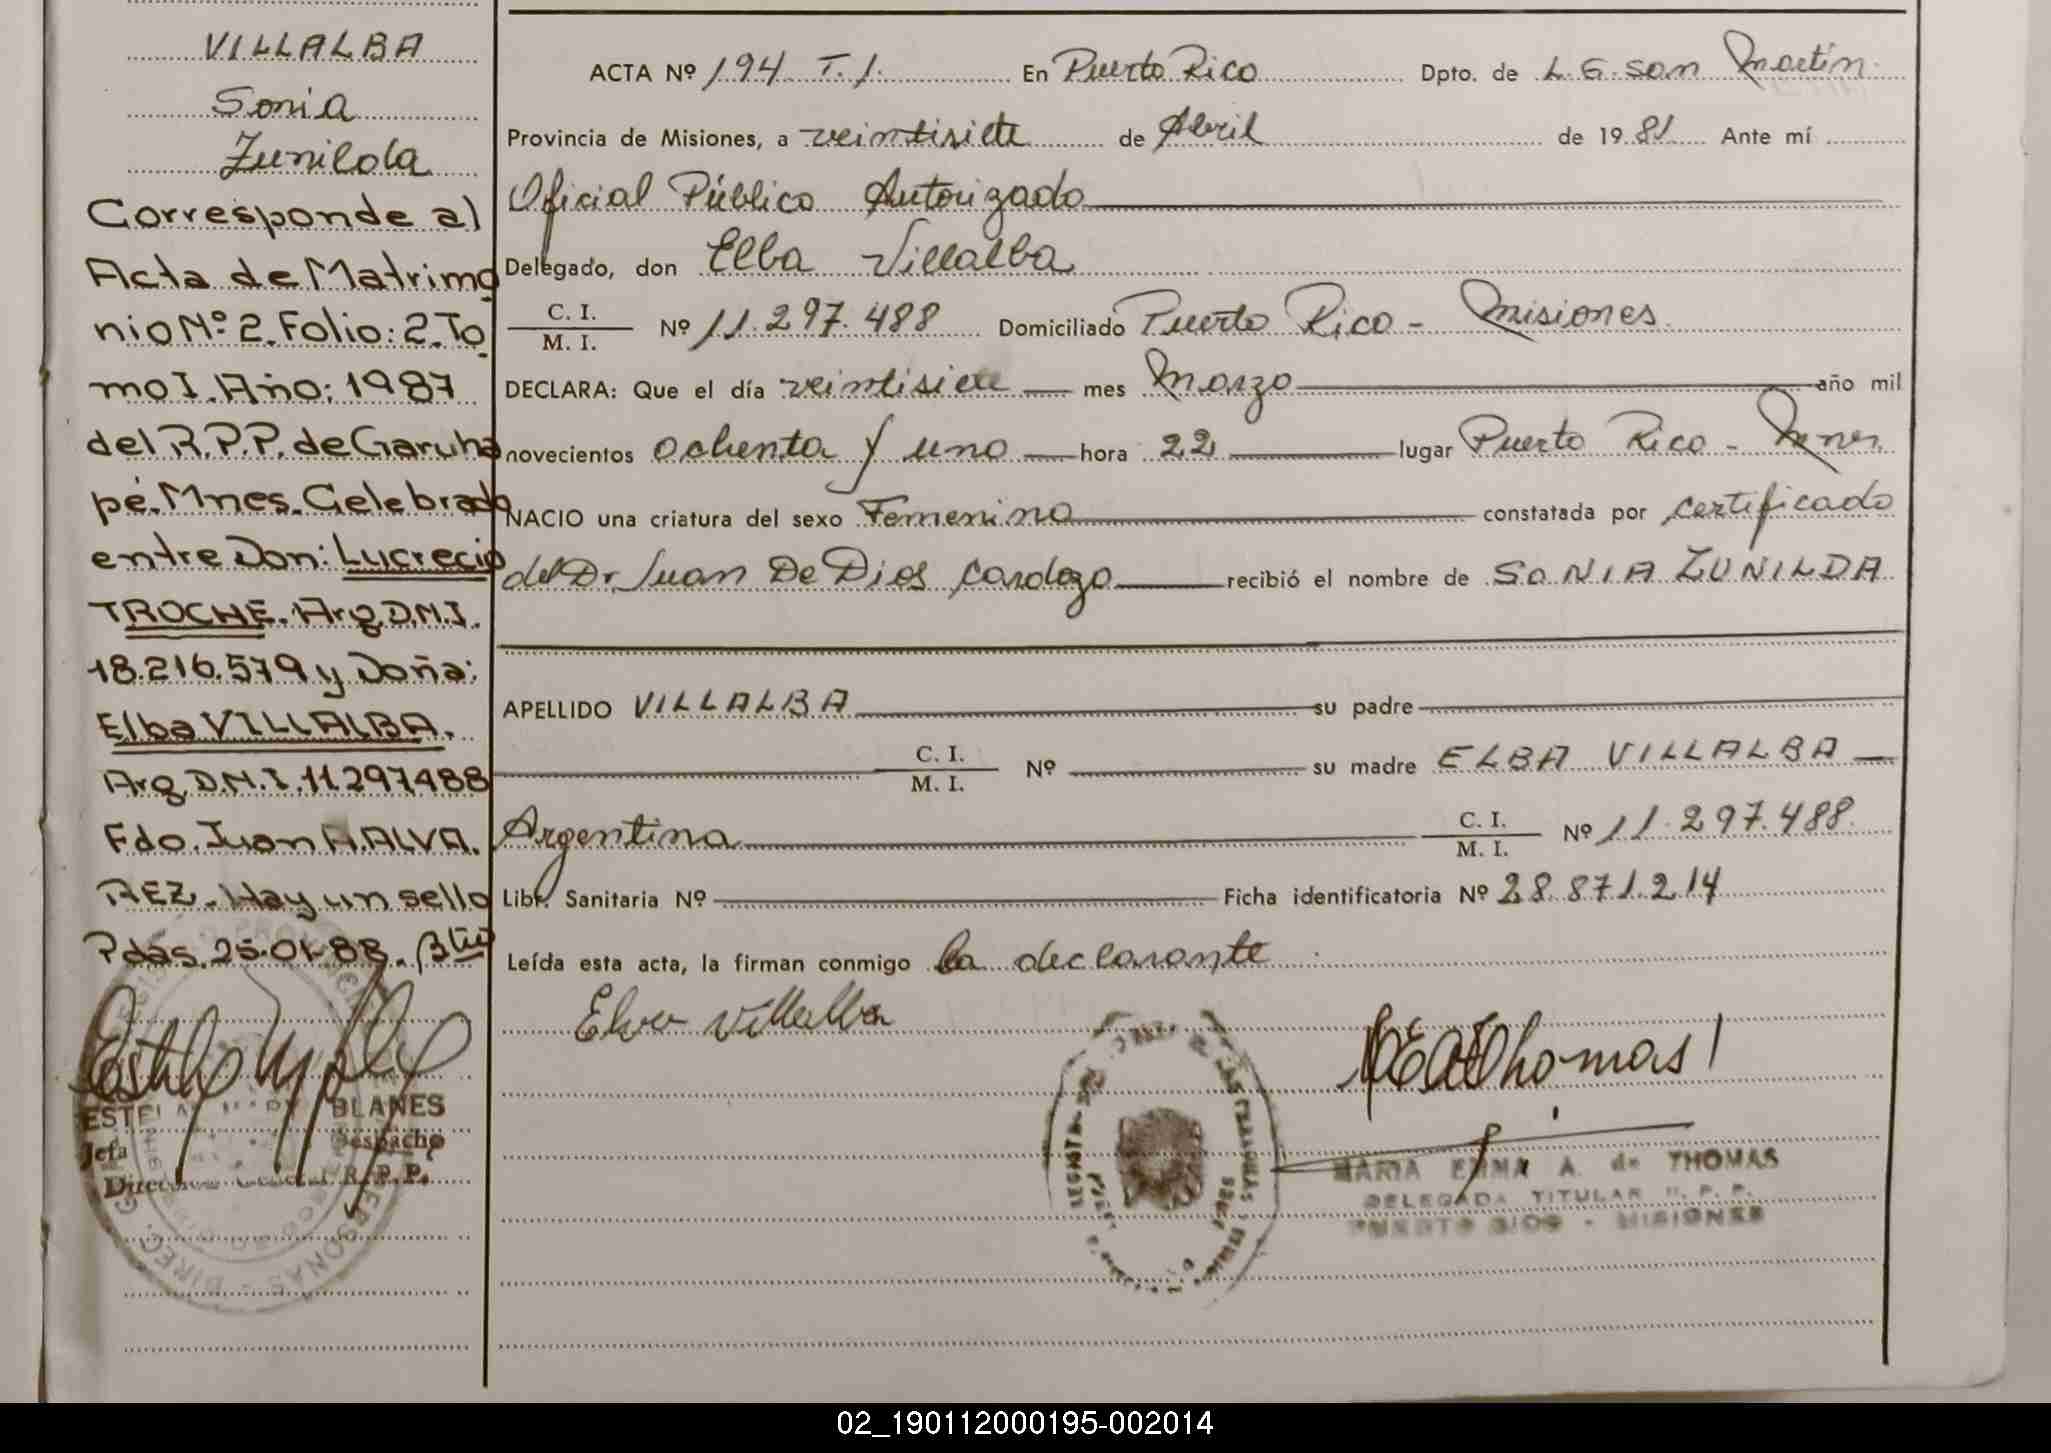 VILLALBA
Sonia
Zunilda
Corresponde al
Acta de Matrimo
nio Nº 2. Folio: 2. To
mo I. Año: 1987
del R.P.P. de Garuha
pé. Mnes. Celebrado
entre Don: Lucrecio
TROCHE. Arg. D.N.I.
18.216.579 y Doña:
Elba VILLALBA.
Arg. D.N.I. 11297488
Fdo. Juan A. ALVA.
REZ. Hay un sello
Pdas. 25-01-88.
BLANES
Jefa Despacho
R.P.P.
ACTA Nº 194 T.I. En Puerto Rico Dpto. de L.G. San Martín
Provincia de Misiones, a veintisiete de Abril de 1981 Ante mí
Oficial Público Autorizado
Delegado, don Elba Villalba
C. I.
M. I. Nº 11.297.488 Domiciliado Puerto Rico - Misiones
DECLARA: Que el día veintisiete mes Marzo año mil
novecientos ochenta y uno hora 22 lugar Puerto Rico - Mnes.
NACIO una criatura del sexo Femenino constatada por certificado
del Dr Juan De Dios Cardozo recibió el nombre de SONIA ZUNILDA
APELLIDO VILLALBA su padre
C. I.
M. I. Nº su madre ELBA VILLALBA
Argentina C. I.
M. I. Nº 11.297.488
Libr. Sanitaria Nº Ficha identificatoria Nº 28.871.214
Leída esta acta, la firman conmigo la declarante
Elva Villalba
MARIA EMMA A. de THOMAS
DELEGADA TITULAR R. P. P.
PUERTO RICO - MISIONES
02_190112000195-002014